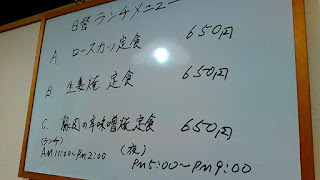 日替ランチメニュー
A. ロースカツ定食 650円
B 生姜焼定食 650円
C. 豚肉の辛味噌焼定食 650円
(ランチ) (夜)
AM11:00〜PM2:00 PM5:00〜PM9:00